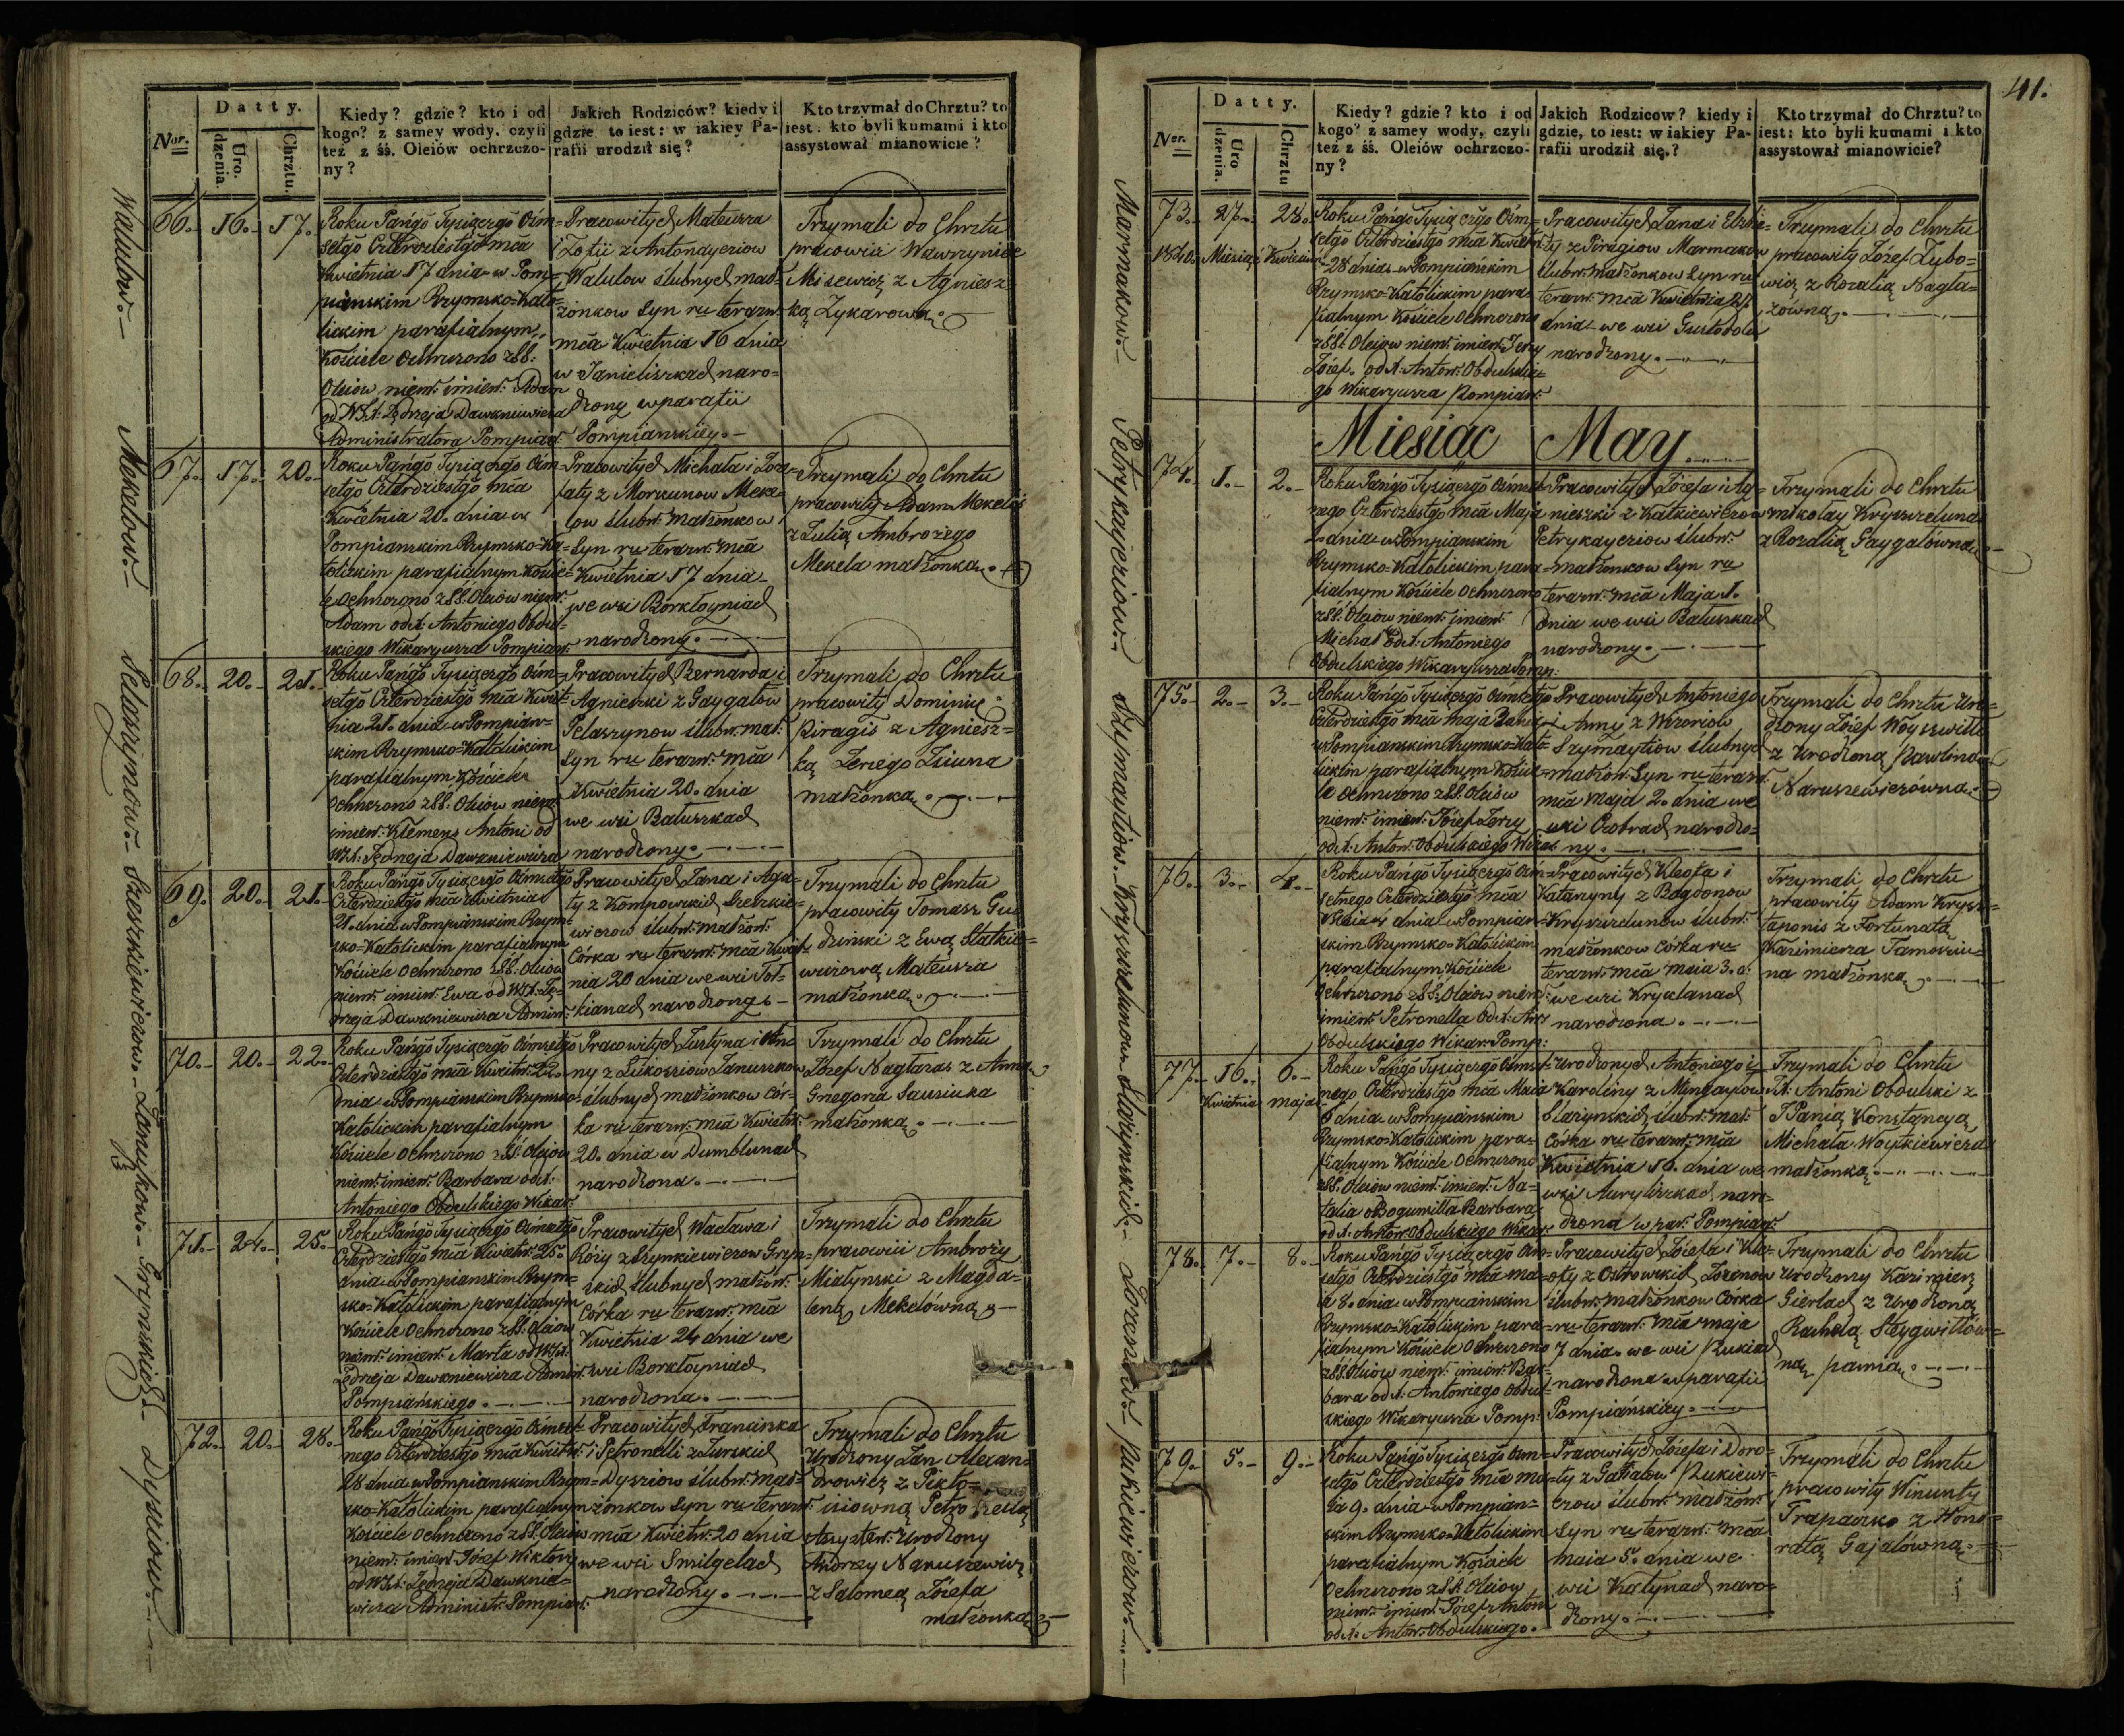 Nor.
Datty.
Uro.
dzenia.
Chrztu.
Kiedy? gdzie? kto i od
kogo? z samey wody, czyli
też z śś. Oleiów ochrzczo-
ny?
Jakich Rodziców? kiedy i
gdzie to iest: w iakiey Pa-
rafii urodził się?
Kto trzymał do Chrztu? to
iest: kto byli kumami i kto
assystował mianowicie?
Walulow.
Mekelow.
Pelaszynow.
Szeszkiewiczow.
Janu
Grynskich
Dyszow.
66. 16. 17.
Roku Pańgō Tysiączgō Ośm=
setgō Czterdziestgō mca
Kwietnia 17 dnia w Pom=
pianskim Rzymsko=Kato=
lickim parafialnym
Kościele Ochrzczono z SS.
Oleiów niem. imien. Adam
Jędrzeja Dawkniewicza
Administratora Pompian.
Pracowitych Mateusza
i Zofii z Antonayciow
Walulow ślubnych mał=
żonkow Syn ru teraz.
mca Kwietnia 16 dnia
w Janieliszkach naro=
dzony w parafii
Pompianskiey.
Trzymali do Chrztu
pracowici Wawrzyniec
Misewicz z Agniesz=
ką Zykarowną.
67. 17. 20.
Roku Pańgō Tysiączgō Ośm=
setgō Czterdziestgō mca
Kwietnia 20. dnia w
Pompianskim Rzymsko=Ka=
tolickim parafialnym Koście=
le Ochrzczono z SS. Oleiów niem.
Adam od X. Antoniego Obdul=
skiego Wikaryusza Pompian.
Pracowitych Michała i Aga=
taty z Morkunow Meke=
low ślubn. małżonkow
Syn ru teraz. mca
Kwietnia 17 dnia
we wsi Borkłoyniach
narodzony.
Trzymali do Chrztu
pracowity Adam Mekela
z Julią Ambrożego
Mekela małżonką.
68. 20. 21.
Roku Pańgō Tysiączgō Ośm=
setgō Czterdziestgō mca Kwiet=
nia 21. dnia w Pompian=
skim Rzymsko=Katolickim
parafialnym Kościele
Ochrzczono z SS. Oleiów niem.
imien. Klemens Antoni od
Jędrzeja Dawkniewicza
Pracowitych Bernarda i
Agnieszki z Gaygałow
Pelaszynow ślubn. mał:
Syn ru teraz. mca
Kwietnia 20. dnia
we wsi Bałuszkach
narodzony.
Trzymali do Chrztu
pracowity Dominik
Piragis z Agniesz=
ką Jerzego
małżonką.
69. 20. 21.
Roku Pańgō Tysiączgō Ośmsetgō
Czterdziestgō mca Kwietnia
21. dnia w Pompianskim Rzym=
sko=Katolickim parafialnym
Kościele Ochrzczono z SS. Oleiów
niem. imien. Ewa od Ję=
drzeja Dawkniewicza Admin.
Pracowitych Jana i Aga=
ty z Kompowskich Szeszkie=
wiczow ślubn. małżon.
Córka ru teraz. mca Kwiet=
nia 20 dnia we wsi Toł=
kianach narodzona
Trzymali do Chrztu
pracowity Tomasz Gu=
dziński z Ewą Statkie=
wiczową Mateusza
małżonką.
70. 20. 22.
Roku Pańgō Tysiączgō Ośmsetgō
Czterdziestgō mca Kwietn. 22.
dnia w Pompianskim Rzymsko=
Katolickim parafialnym
Kościele Ochrzczono z SS. Oleiów
niem. imien. Barbara od X.
Antoniego Obdulskiego Wikar.
Pracowitych Justyna i An=
ny z Lukosziow Januszkow
ślubnych małżonkow Cór=
ka ru teraz. mca Kwietn.
20. dnia w Dumblunach
narodzona.
Trzymali do Chrztu
Józef Nagłazas z Anną
Gregoria
małżonką.
71. 24. 25.
Roku Pańgō Tysiączgō Ośmsetgō
Czterdziestgō mca Kwietn. 25.
dnia w Pompianskim Rzym=
sko=Katolickim parafialnym
Kościele Ochrzczono z SS. Oleiów
niem. imien. Marta od
Jędrzeja Dawkniewicza Admin.
Pompiańskiego.
Pracowitych Wacława i
Róży z Szynkiewiczow Gryn=
skich ślubnych małżon.
Córka ru teraz. mca
Kwietnia 24 dnia we
wsi Borkłoyniach
narodzona.
Trzymali do Chrztu
pracowici Ambroży
Miałynski z Magda=
leną Mekelówną
72. 20. 28.
Roku Pańgō Tysiączgō Ośmset=
nego Czterdziestgō mca Kwietn.
28 dnia w Pompianskim Rzym=
sko=Katolickim parafialnym
Kościele Ochrzczono z SS. Oleiów
niem. imien. Józef Wiktor
od Jędrzeja Dawknie=
wicza Administr. Pompian.
Pracowitych Franciszka
i Petronelli z Turskich
Dyszow ślubn. mał=
żonkow Syn ru teraz.
mca Kwietn. 20 dnia
we wsi Smilgelach
narodzony.
Trzymali do Chrztu
Urodzony Jan Alexan=
drowicz z
Petro nellą
Asystów. Urodzony
Andrzey Naruszewicz
z Salomeą Józefa
małżonką
41.
Nor.
Datty.
Uro
dzenia.
Chrztu
Kiedy? gdzie? kto i od
kogo? z samey wody, czyli
też z śś. Oleiów ochrzczo-
ny?
Jakich Rodziców? kiedy i
gdzie, to iest: w iakiey Pa-
rafii urodził się?
Kto trzymał do Chrztu? to
iest: kto byli kumami i kto
assystował mianowicie?
Marmakow.
Petrykayciow.
Szymaytiow.
Kryszzelunow
Slażynskich.
Rukiewiczow.
73. 27. 28.
1840. Miesiąc Kwiecień
Roku Pańgō Tysiączgō Ośm=
setgō Czterdziestgō mca Kwiet.
28 dnia w Pompiańskim
Rzymsko=Katolickim para=
fialnym Kościele Ochrzczono
z SS. Oleiów niem. imien. Jerzy
Józef. od X. Anton. Obdulskie=
go Wikaryusza Pompian.
Pracowitych Jana i Elzbie=
ty z Piragiow Marmakow
ślubn. małżonkow Syn ru
teraz. mca Kwietnia 27
dnia we wsi Gustodołu
narodzony.
Trzymali do Chrztu
pracowity Józef Zubo=
wicz z Rozalią Nagła=
zówną.
Miesiąc May.
74. 1. 2.
Roku Pańgō Tysiączgō Ośmset=
nego Czterdziestgō mca Maja
2 dnia w Pompianskim
Rzymsko=Katolickim para=
fialnym Kościele Ochrzczono
z SS. Oleiów niem. imien.
Michał od X. Antoniego
Obdulskiego Wikaryusza Pomp:
Pracowitych Józefa i Ag=
nieszki z Katkiewiczow
Petrykayciow ślubn.
małżonkow Syn ru
teraz. mca Maja 1.
dnia we wsi Bałuszkach
narodzony.
Trzymali do Chrztu
Mikołay Kryszzeluna
z Rozalią Gaygałówną
75. 2. 3.
Roku Pańgō Tysiączgō Ośmsetgō
Czterdziestgō mca Maja 3 dnia
w Pompianskim Rzymsko=Kato=
lickim parafialnym Koście=
le Ochrzczono z SS. Oleiów
niem. imien. Józef Jerzy
od X. Anton. Obdulskiego Wikar.
Pracowitych Antoniego
i Anny z
Szymaytiow ślubnych
małżon. Syn ru teraz.
mca Maja 2. dnia we
wsi narodzo=
ny.
Trzymali do Chrztu Uro=
dzony Józef Woyszwiłł
z Urodzoną Pawliną
Naruszewiczówną.
76. 3. 4.
Roku Pańgō Tysiączgō Ośm=
setnego Czterdziestgō mca
Maia 4 dnia w Pompian=
skim Rzymsko=Katolickim
parafialnym Kościele
Ochrzczono z SS. Oleiów niem.
imien. Petronella od X. Ant.
Obdulskiego Wikar. Pomp:
Pracowitych Kleofa i
Katarzyny z Bogdonow
Kryszzelunow ślubn.
małżonkow Córka ru
teraz. mca Maia 3. d.
we wsi Kryklanach
narodzona.
Trzymali do Chrztu
pracowity Adam Krysz=
taponis z Fortunatą
Kazimierza Tamosziu=
na małżonką.
77. 16. 6.
Kwietnia maja
Roku Pańgō Tysiączgō Ośmset=
nego Czterdziestgō mca Maia
6 dnia w Pompianskim
Rzymsko=Katolickim para=
fialnym Kościele Ochrzczono
z SS. Oleiów niem. imien. Na=
talia Bogumiła Barbara
od X. Anton. Obdulskiego Wikar.
Urodzonych Antoniego i
Karoliny z Mingayłow
Slażynskich ślubn. mał.
Córka ru teraz. mca
Kwietnia 16. dnia we
wsi Auryliszkach naro=
dzona w par. Pompian.
Trzymali do Chrztu
X. Antoni Obdulski z
JPanią Konstancyą
Michała Woytkiewicza
małżonką.
78. 7. 8.
Roku Pańgō Tysiączgō Ośm=
setgō Czterdziestgō mca Ma=
ia 8. dnia w Pompianskim
Rzymsko=Katolickim para=
fialnym Kościele Ochrzczono
z SS. Oleiów niem. imien. Bar=
bara od X. Antoniego Obdul=
skiego Wikaryusza Pomp:
Pracowitych Józefa i
z Ostrowskich
ślubn. małżonkow Córka
ru teraz. mca maja
7 dnia we wsi Rukiach
narodzona w parafii
Pompiańskiey.
Trzymali do Chrztu
Urodzony Kazimierz
Gierłach z Urodzoną
Rachelą Steygwiłłów=
ną panną.
79. 5. 9.
Roku Pańgō Tysiączgō Ośm=
setgō Czterdziestgō mca Ma=
ia 9. dnia w Pompian=
skim Rzymsko=Katolickim
parafialnym Kościele
Ochrzczono z SS. Oleiow
niem. imien. Józef Antoni
od X. Anton. Obdulskiego.
Pracowitych Józefa i Doro=
ty z Rukiewi=
czow ślubn. małżon.
Syn ru teraz. mca
maia 5. dnia we
wsi Katynach naro=
dzony.
Trzymali do Chrztu
pracowity Winunty
Trapaszko z Hono=
ratą Gajałówną.